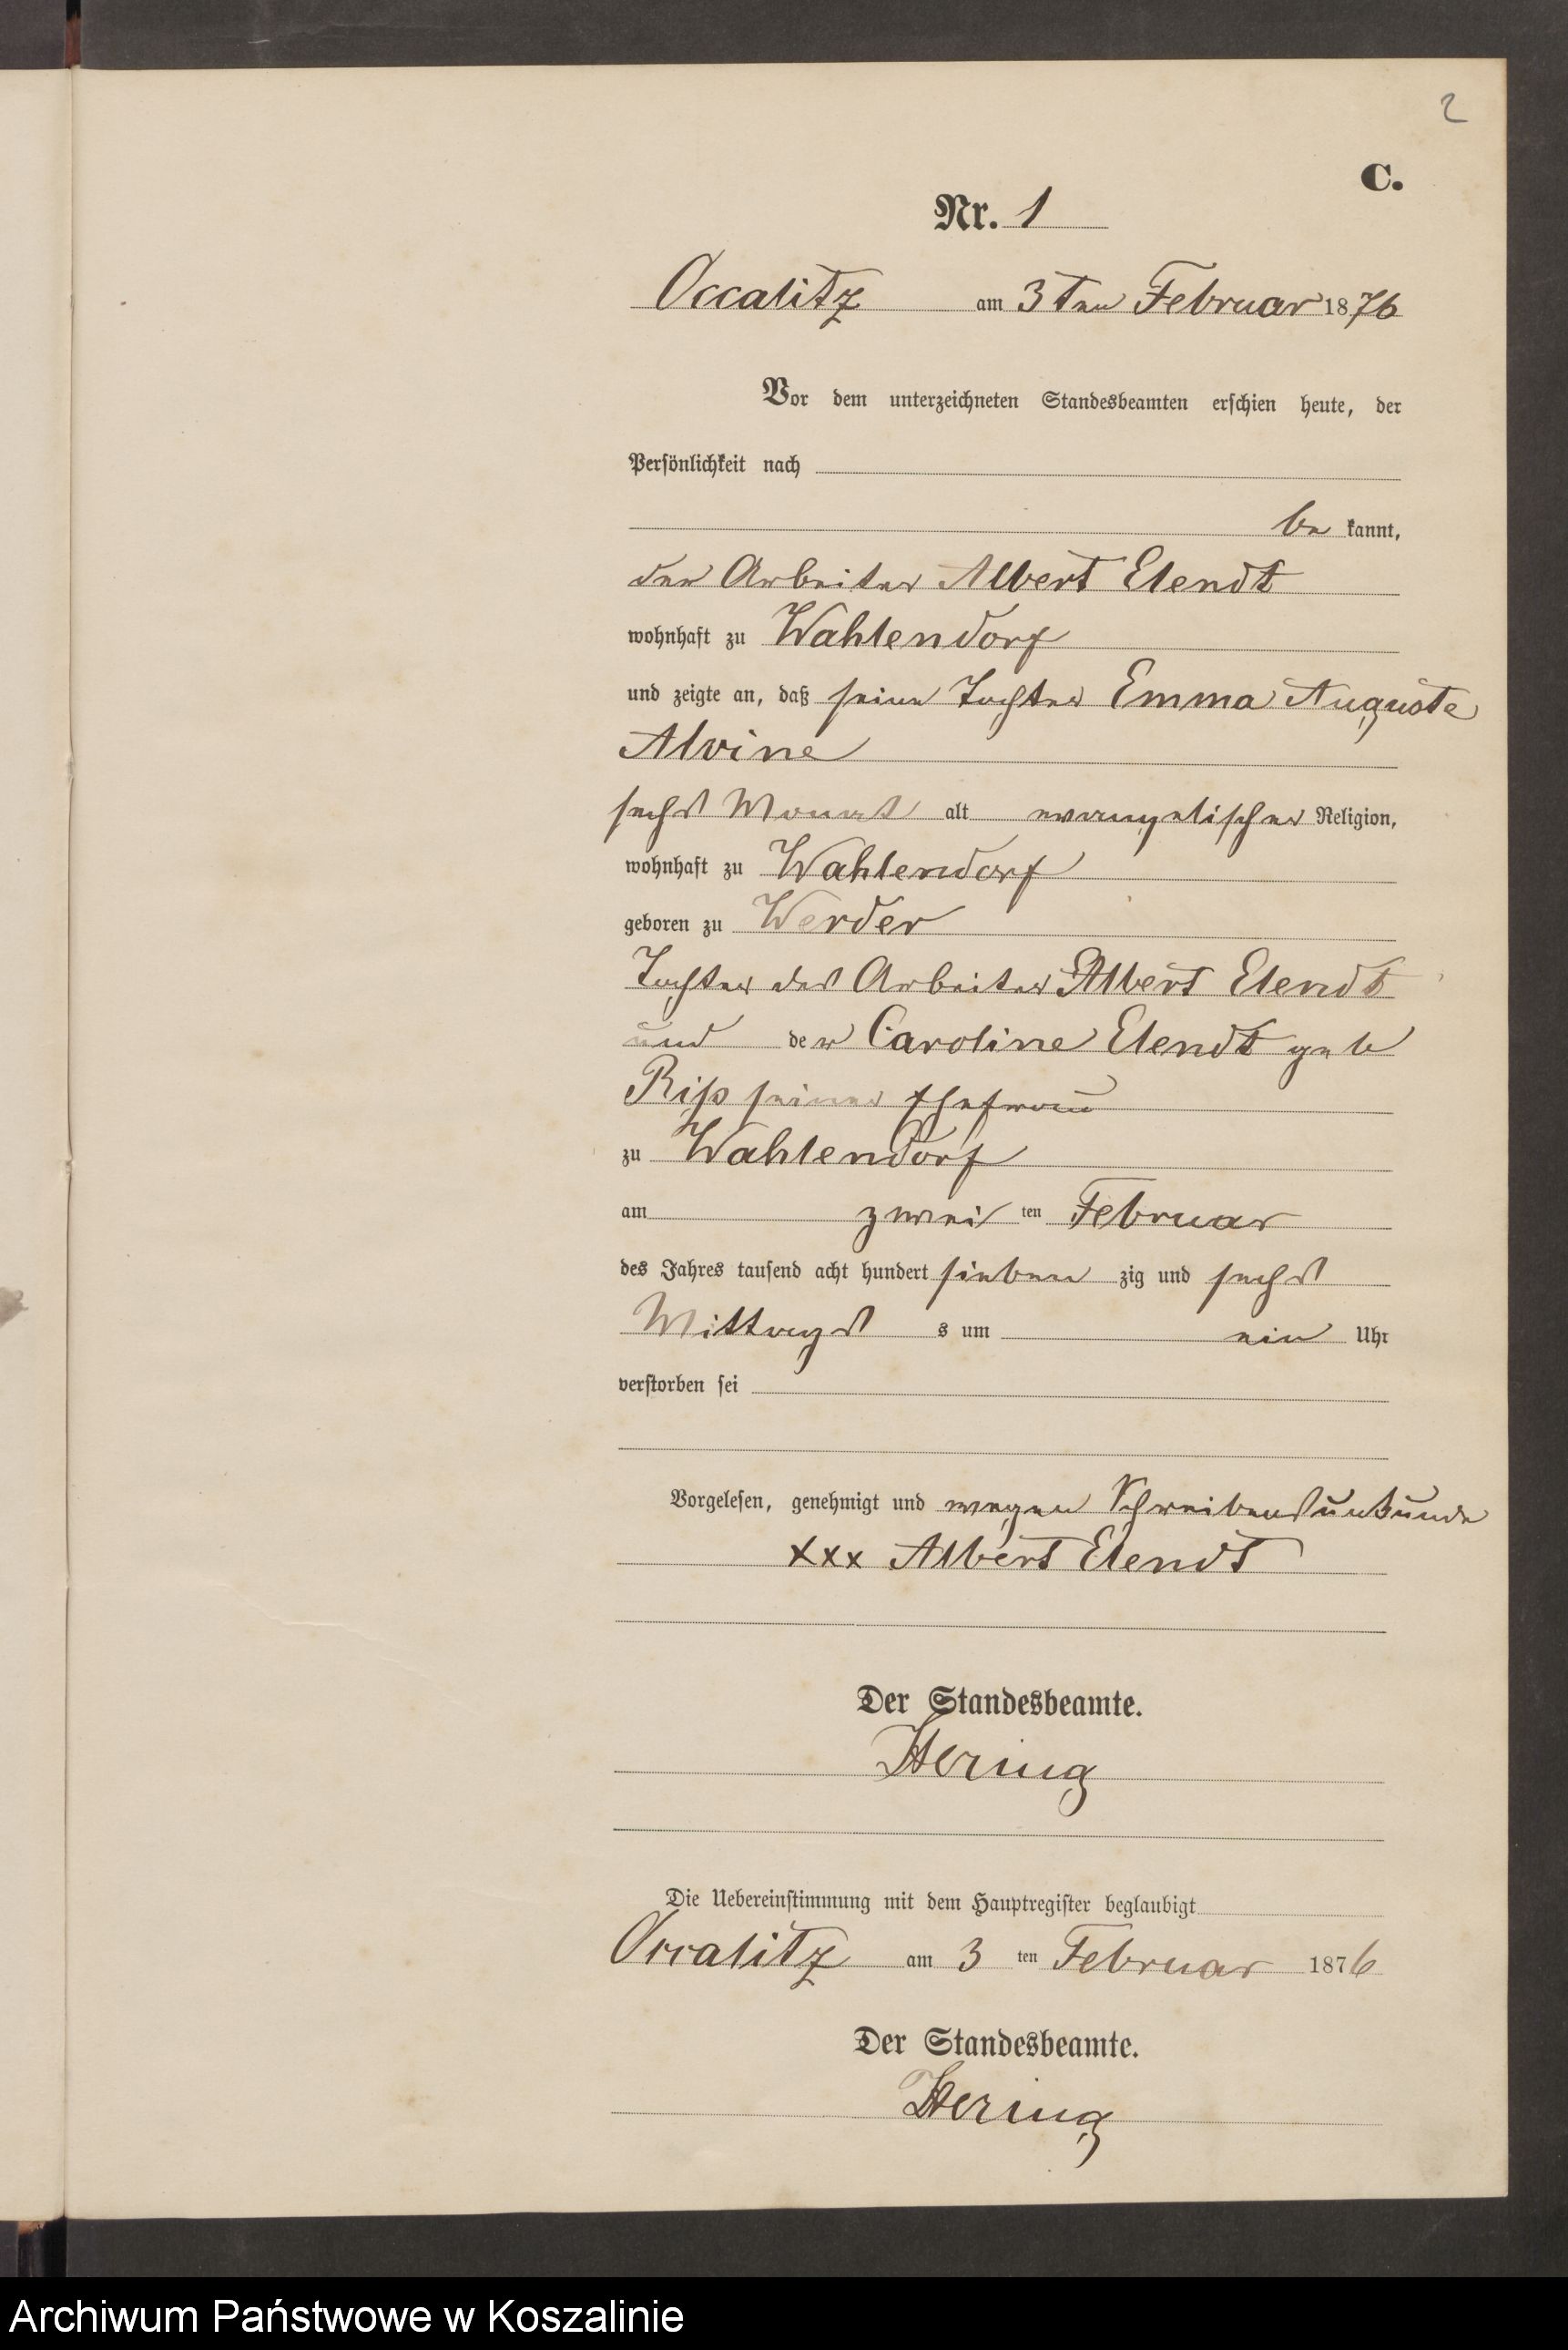 2
C.
Nr. 1
Occalitz am 3ten Februar 1876
Vor dem unterzeichneten Standesbeamten erschien heute, der
Persönlichkeit nach
be kannt,
der Arbeiter Albert Elendt
wohnhaft zu Wahlendorf
und zeigte an, daß seine Tochter Emma Auguste
Alvine
sechs Monat alt evangelischer Religion,
wohnhaft zu Wahlendorf
geboren zu Werder
Tochter des Arbeiter Albert Elendt
und der Caroline Elendt geb
Riß seiner Ehefrau
zu Wahlendorf
am zwei ten Februar
des Jahres tausend acht hundert sieben zig und sechs
Mittags s um ein Uhr
verstorben sei
Vorgelesen, genehmigt und wegen Schreibensunkunde
xxx Albert Elendt
Der Standesbeamte.
Hering
Die Uebereinstimmung mit dem Hauptregister beglaubigt
Occalitz am 3 ten Februar 1876
Der Standesbeamte.
Hering
Archiwum Państwowe w Koszalinie